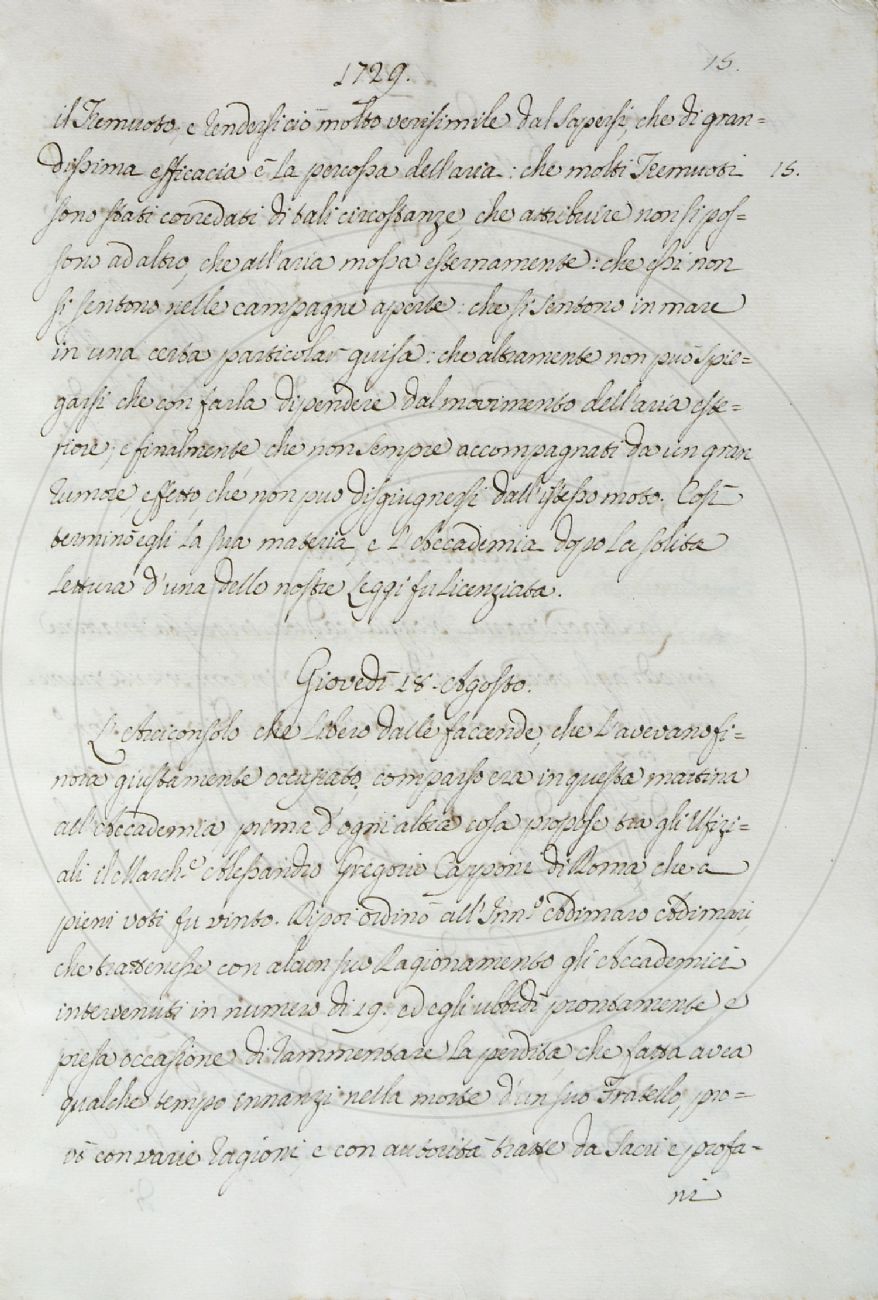 1729.
15.
il Tremuoto, e rendersi ciò molto verisimile dal sapersi, che di gran=
dissima efficacia è la percossa dell'aria: che molti Tremuoti
15.
sono stati corredati di tali circostanze, che attribuire non si pos=
sono ad altro, che all'aria mossa esternamente: che essi non
si sentono nelle campagne aperte: che si sentono in mare
in una certa particolar guisa: che altramente non può spie=
garsi che con farla dipendere dal movimento dell'aria este=
riore, e finalmente che non sempre accompagnati da un gran
rumore effetto che non può disgiugnersi dall'istesso moto. Così
terminò egli la sua materia, e l'Accademia dopo la solita
lettura d'una delle nostre Leggi fu licenziata.
Giovedì 18. Agosto.
L'Arciconsolo che libero dalle faccende, che l'avevano fi=
nora giustamente occupato, comparso era in questa mattina
all'Accademia, prima d'ogni altra cosa propose tra gli Ufizi=
ali il March.e Alessandro Gregorio Capponi di Roma che a
pieni voti fu vinto. Dipoi ordinò all'Inn.o Adimaro Adimari
che trattenesse con alcun suo Ragionamento gli Accademici
intervenuti in numero di 19. ed egli ubbidì prontamente e
presa occasione di rammentare la perdita, che fatta avea
qualche tempo innanzi nella morte d'un suo Fratello, pro=
vò con varie ragioni, e con autorità tratte da Sacri e profa=
ni